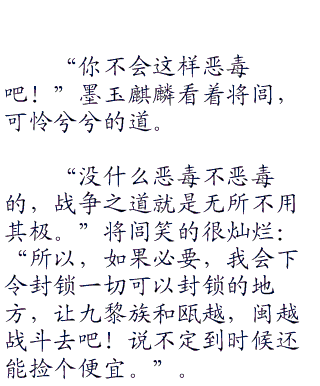 “你不会这样恶毒
吧！”墨玉麒麟看着将闾，
可怜兮兮的道。
“没什么恶毒不恶毒
的，战争之道就是无所不用
其极。”将闾笑的很灿烂：
“所以，如果必要，我会下
令封锁一切可以封锁的地
方，让九黎族和瓯越，闽越
战斗去吧！说不定到时候还
能捡个便宜。”。